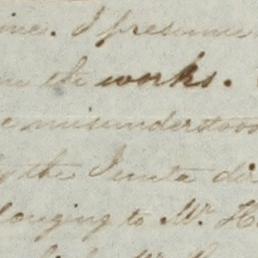 ine. I presume
the works.
misunderstood
the Junta di
longing to Mr. H